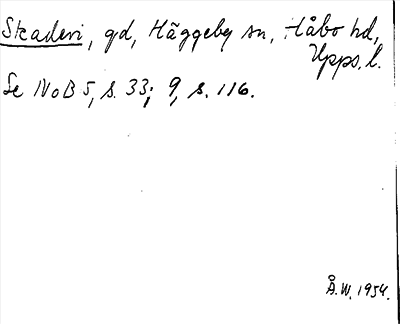 Skadevi, gd, Häggeby sn, Håbo hd,
Upps. l.
Se NoB 5, s. 33; 9, s. 116.
Å.W. 1954.